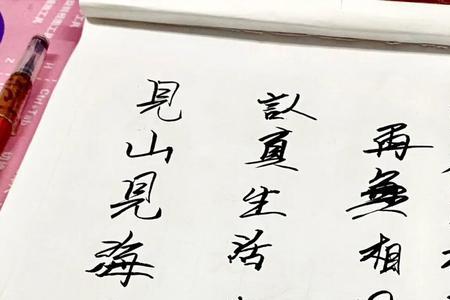 再無相
认真生活
見山見海